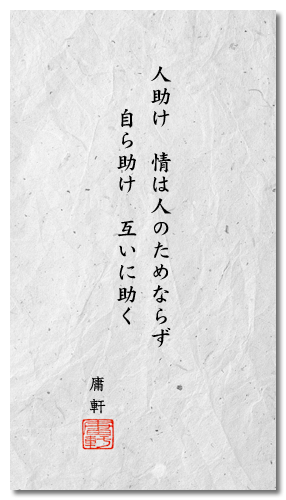 人助け　情は人のためならず
自ら助け　互いに助く
庸軒
庸軒